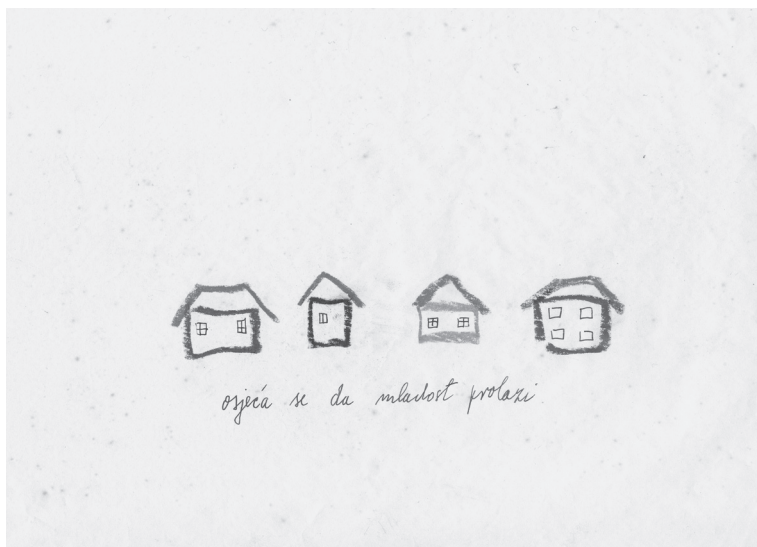 osjeća se da mladost prolazi